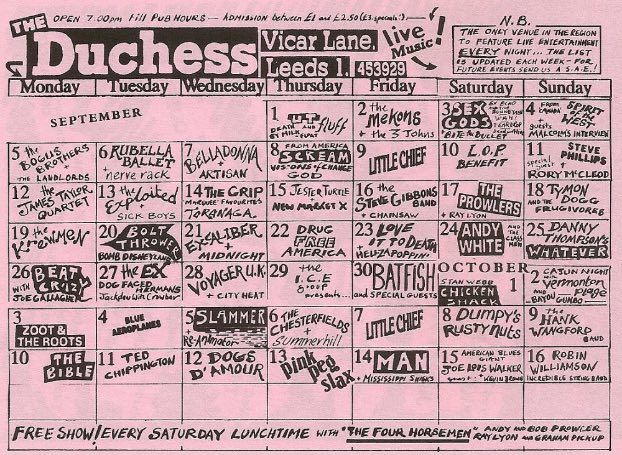 THE Duchess
OPEN 7.00pm till PUB HOURS — ADMISSION between £1 and £2.50 (£3. specials.)
Vicar Lane,
Leeds 1. 453929
live Music!
N.B.
THE ONLY VENUE IN THE REGION
TO FEATURE LIVE ENTERTAINMENT
EVERY NIGHT... THE LIST
IS UPDATED EACH WEEK - FOR
FUTURE EVENTS SEND US A S.A.E!
Monday Tuesday Wednesday Thursday Friday Saturday Sunday
SEPTEMBER
1 UT
DEATH BY MILK FLOAT AND Fluff
2 the Mekons
+ the 3 Johns
3 SEX GODS
BITE THE BULLET
4 FROM CANADA SPIRIT OF THE WEST
+ guests
MALCOLM'S INTERVIEW
5 the BOGUS BROTHERS
+ THE LANDLORDS
6 RUBELLA BALLET
+ nerve rack
7 BELLADONNA
+ ARTISAN
8 FROM AMERICA
SCREAM
VISIONS of CHANGE
GOD
9 LITTLE CHIEF
10 L.O.P.
BENEFIT
11 STEVE PHILLIPS
special guest
RORY McLEOD
12 the JAMES TAYLOR QUARTET
13 the Exploited
+ SICK BOYS
14 THE GRIP
MARQUEE FAVOURITES
+ TORANAGA
15 JESTER TURTLE
+ NEW MARKET X
16 the STEVE GIBBONS BAND
+ CHAINSAW
17 THE PROWLERS
+ RAY LYON
18 TYMON
AND THE DOGG
FRUGIVORES
19 the Krewmen
20 BOLT THROWER
BOMB DISNEYLAND
21 EXSALIBER
+ MIDNIGHT
22 DRUG FREE AMERICA
23 LOVE IT TO DEATH
+ HEUZAPOPPIN'
24 ANDY WHITE
AND THE CLASS MEN
25 DANNY THOMPSON'S
WHATEVER
26 BEAT CRAZY
WITH JOE GALLAGHER
27 the EX
DOG FACED HERMANS
Jackdaw with Crowbar
28 VOYAGER U.K.
+ CITY HEAT
29 the I.C.E group
presents...
30 BATFISH
and SPECIAL GUESTS
OCTOBER
STAN WEBB 1
CHICKEN SHACK
2 CAJUN NIGHT with
vermenton plage
AND BAYOU GUMBO
3 ZOOT & THE ROOTS
4 BLUE AEROPLANES
5 SLAMMER
+ RE-ANIMATOR
6 THE CHESTERFIELDS
+ Summerhill
7 LITTLE CHIEF
8 DUMPY'S RUSTY NUTS
9 THE HANK WANGFORD BAND
10 THE BIBLE
11 TED CHIPPINGTON
12 DOGS D'AMOUR
13 pink peg slax
14 MAN
+ MISSISSIPPI SHAKES
15 AMERICAN BLUES GIANT
JOE LOUIS WALKER
guest: KEVIN BROWN
16 ROBIN WILLIAMSON
INCREDIBLE STRING BAND
FREE SHOW! EVERY SATURDAY LUNCHTIME WITH "THE FOUR HORSEMEN" ANDY AND BOB PROWLER
RAY LYON AND GRAHAM PICKUP